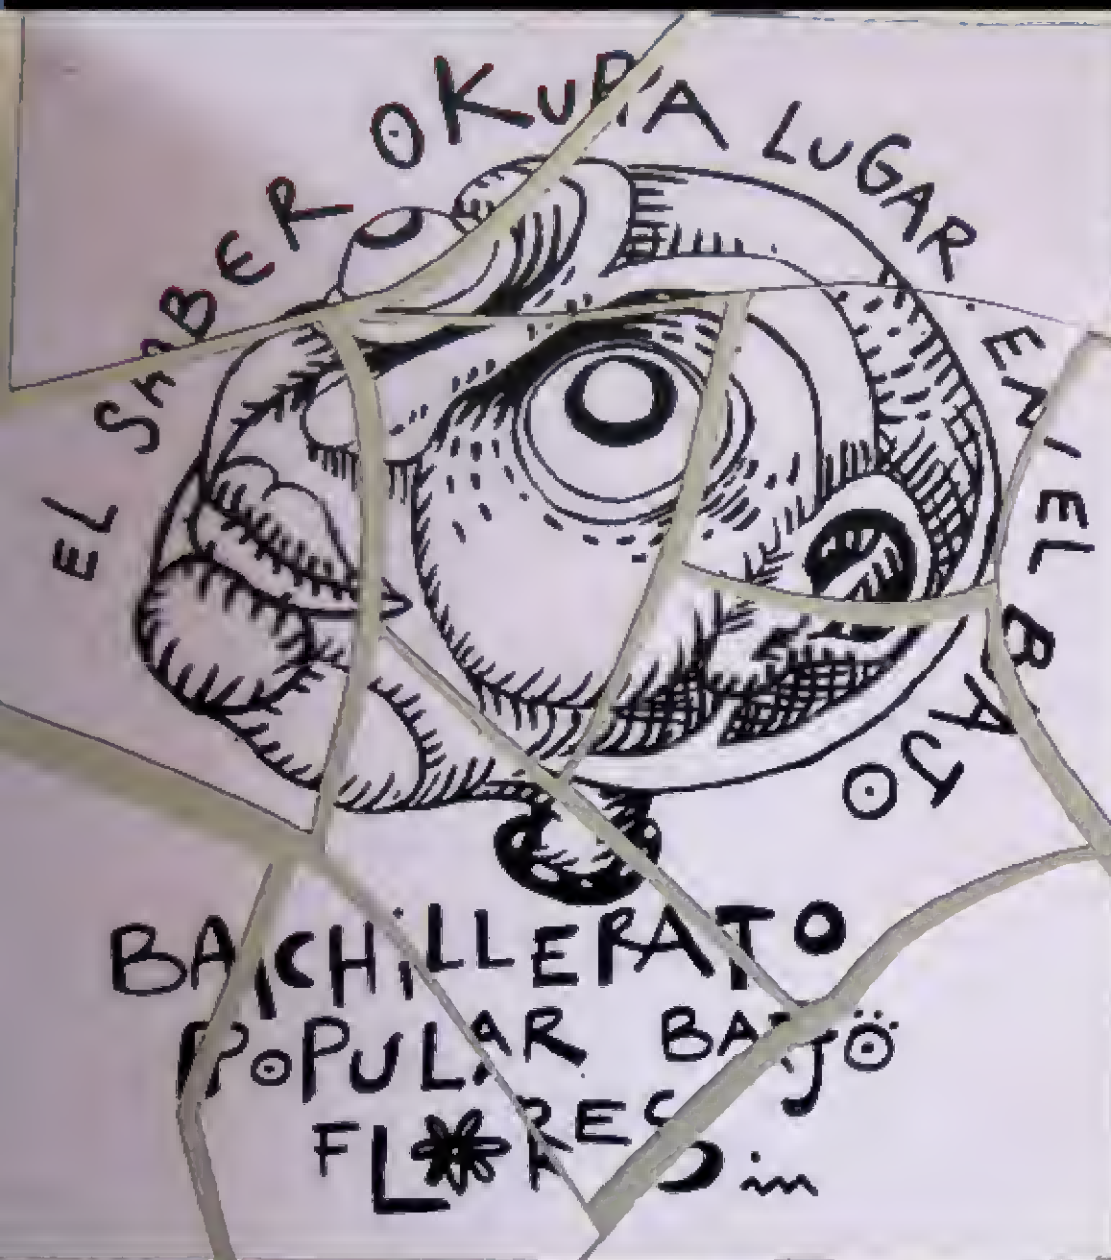 EL SABER OKUPA LUGAR. EN EL BAJO
BACHiLLERATO
POPULAR BAJÖ
FLORES